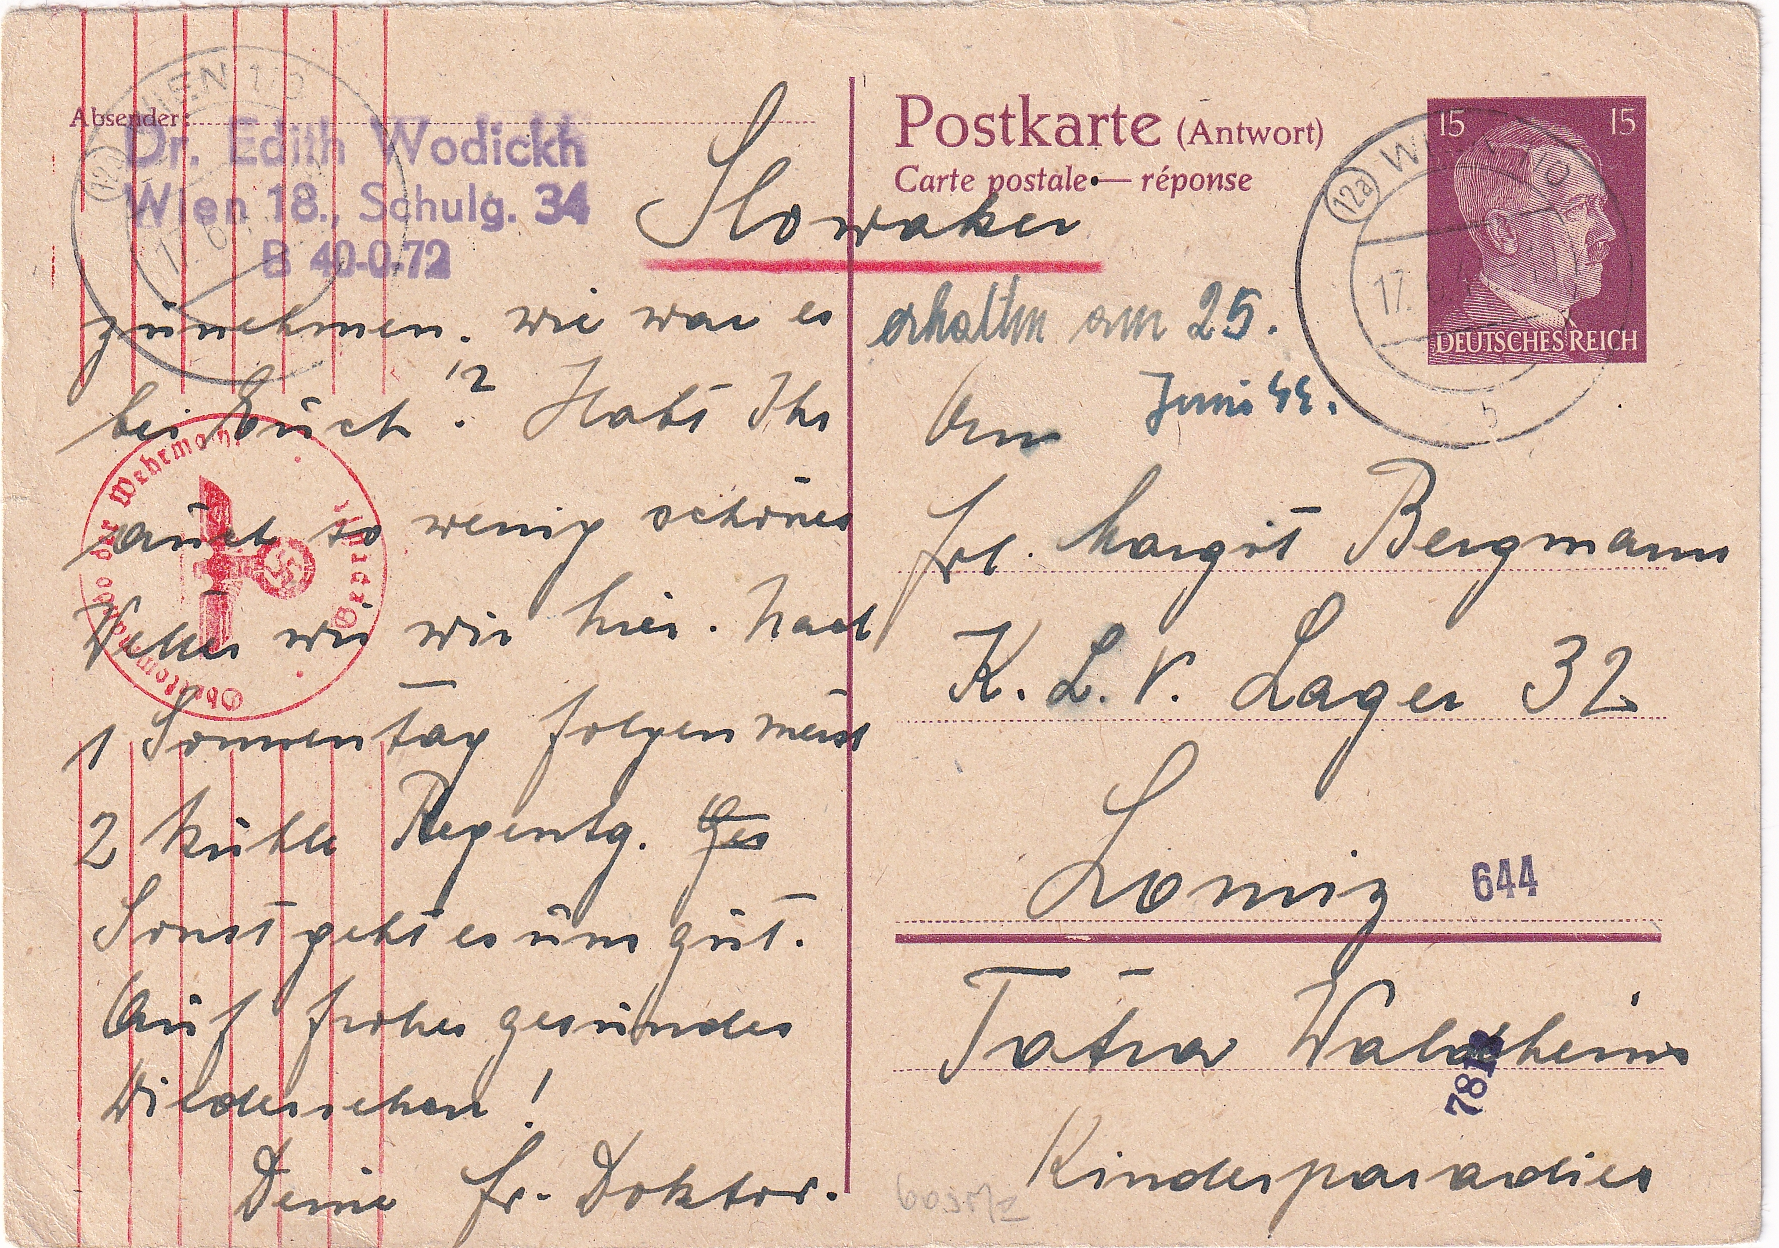 Absender:
Dr. Edith Wodickh
Wien 18., Schulg. 34
B 40-0-72
WIEN 1/0
12a
17. 6.
zunehmen. Wie war es
bei Euch? Habt Ihr
12
auch so wenig schönes
Wetter wie wir hier. Nach
1 Sonnentag folgen meist
2 kühle Regentg. Ges
Sonst geht es uns gut.
Auf frohes gesundes
Wiedersehen!
Deine Fr. Doktor.
Oberkommando der Wehrmacht
Postkarte (Antwort)
Carte postale — réponse
Slowakei
15 15
DEUTSCHES REICH
12a
17.
b
erhalten am 25.
Juni 44.
An
Frl. Margit Bergmann
K. L. V. Lager 32
Lomniz
644
Tatra Waldheim
Kinderparadies